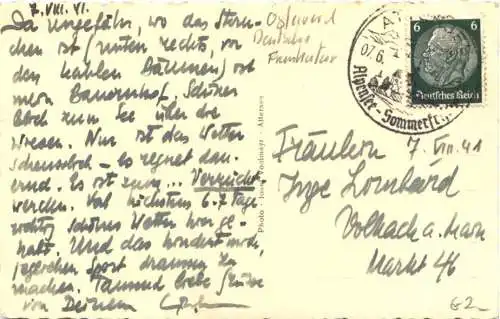 7. VIII. 41.
Da ungefähr, wo das Stern-
chen ist (unten rechts, vor
den kahlen Bäumen) ist
mein Bauernhof. Schöner
Blick zum See über die
Wiesen. Nur ist das Wetter
scheusslich – es regnet dau-
ernd. Es ist zum ... Verrückt
werden. Hab höchstens 6-7 Tage
richtig schönes Wetter hier ge-
habt. Und das hindert mich,
jeglichen Sport draussen zu
machen. Tausend liebe Grüsse
von Deinem
Österreich
Deutsches
Photo: Attersee
07.6.
Alpensee-Sommerfr
6
Deutsches Reich
Fräulein 7. VIII. 41
Inge Lombard
Volkach a. Main
Markt 46
G2